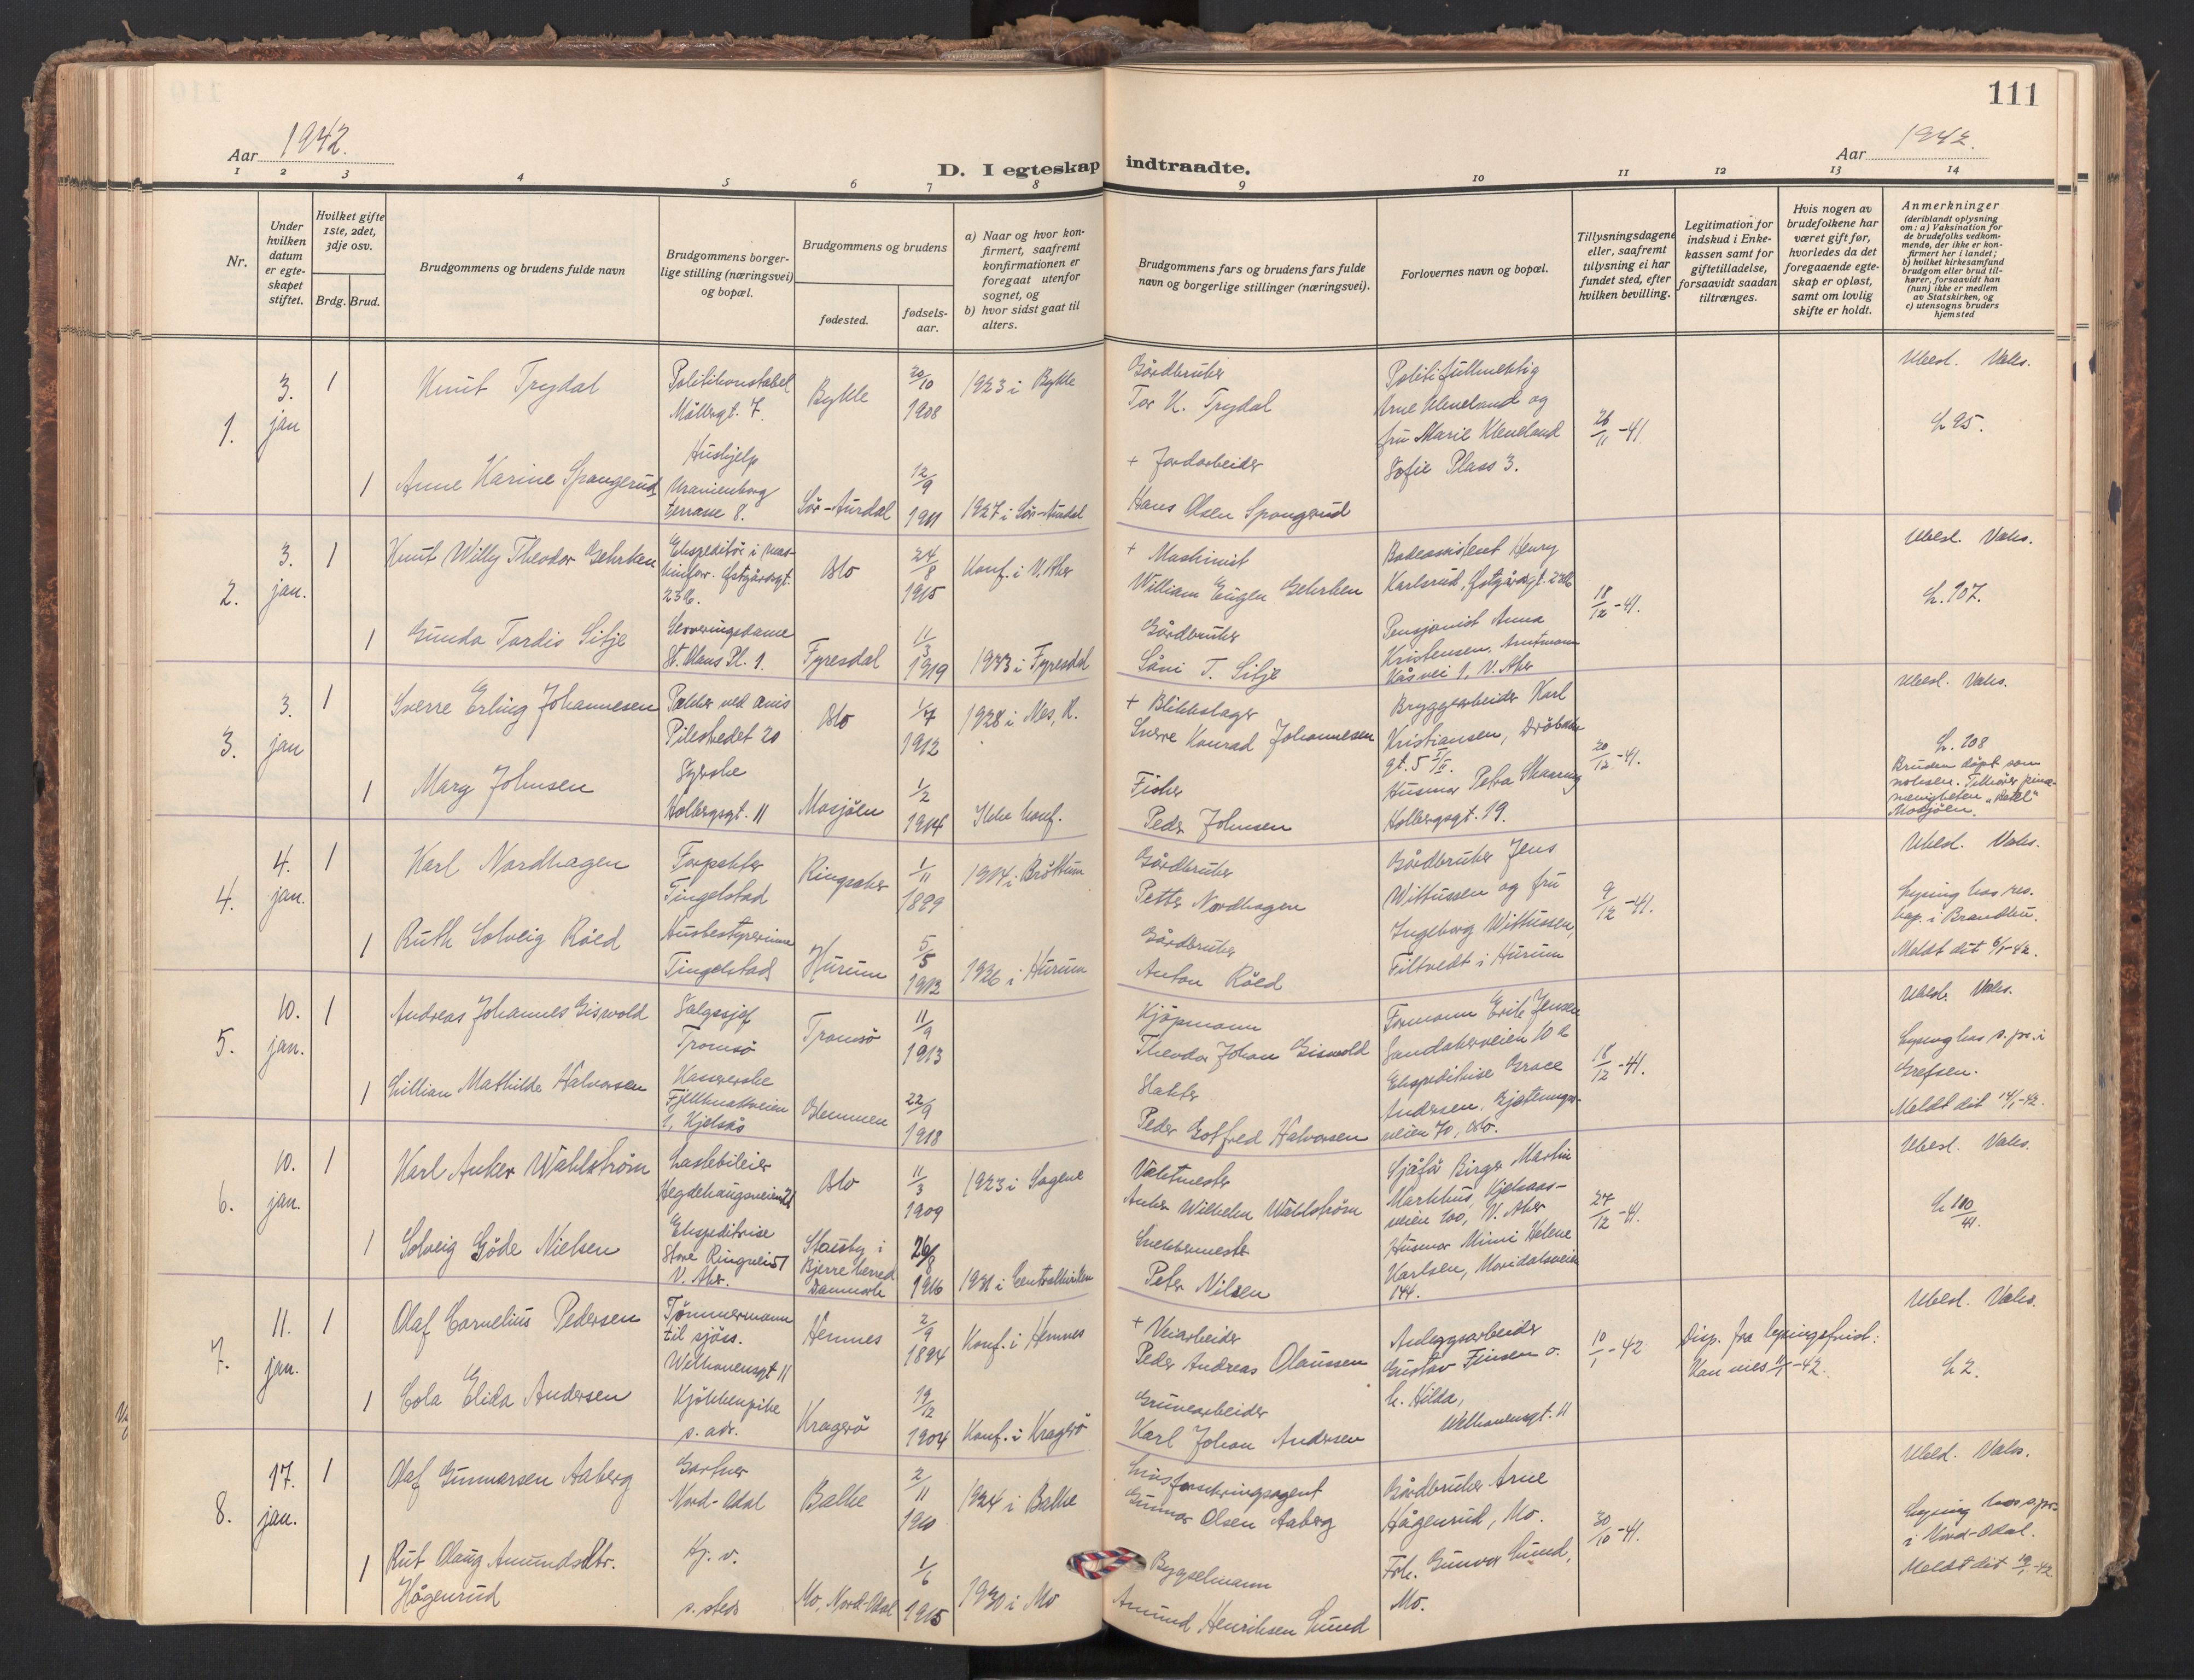 111
Aar 1942.
Aar 1942.
D. I egteskap indtraadte.
1 2 3 4 5 6 7 8 9 10 11 12 13 14
Nr.
Under hvilken datum er egteskapet stiftet.
Hvilket gifte 1ste, 2det, 3dje osv.
Brdg. Brud.
Brudgommens og brudens fulde navn
Brudgommens borgerlige stilling (næringsvei) og bopæl.
Brudgommens og brudens
fødested.
fødselsaar.
a) Naar og hvor konfirmert, saafremt konfirmationen er foregaat utenfor sognet, og
b) hvor sidst gaat til alters.
Brudgommens fars og brudens fars fulde navn og borgerlige stillinger (næringsvei).
Forlovernes navn og bopæl.
Tillysningsdagene eller, saafremt tillysning ei har fundet sted, efter hvilken bevilling.
Legitimation for indskud i Enkekassen samt for giftetilladelse, forsaavidt saadan tiltrænges.
Hvis nogen av brudefolkene har været gift før, hvorledes da det foregaaende egteskap er opløst, samt om lovlig skifte er holdt.
Anmerkninger
(deriblandt oplysning om: a) Vaksination for de brudefolks vedkommende, der ikke er konfirmert her i landet; b) hvilket kirkesamfund brudgom eller brud tilhører, forsaavidt han (hun) ikke er medlem av Statskirken, og c) utensogns bruders hjemsted
1.
3. jan
1
Knut Trydal
Politikonstabel
Møllergt. 7.
Bykle
20/10 1908
1923 i Bykle
Gårdbruker
Tor K. Trydal
Politifullmektig
Arne Kleveland og
fru Marie Kleveland
Sofie Plass 3.
26/11-41.
Ubesl. Vaks.
L 95.
1
Anne Karine Spangerud
Hushjelp
Uranienborg
terrasse 8.
Sør-Aurdal
12/9 1911
1927 i Sør-Aurdal
+ Jordarbeider
Hans Olsen Spangerud
2.
3. jan.
1
Knut Willy Theodor Gehrken
Ekspeditør i
23 b.
Oslo
24/8 1915
Konf. i V. Aker
+ Maskinist
William Eugen Gehrken
Badeassistent Henry
Karlsrud,
18/12-41.
Ubesl. Vaks.
L. 107.
1
Gunda Tordis Sitje
Serveringsdame
St. Olavs Pl. 1.
Fyresdal
11/3 1919
1933 i Fyresdal
Gårdbruker
T. Sitje
Pensjonist Anna
Kristensen, Amtmann
V. Aker
3.
3. jan
1
Sverre Erling Johannesen
Pakker ved avis
Pilestredet 20
Oslo
1/7 1912
1928 i Nes, R.
+ Blikkslager
Sverre Konrad Johannesen
Bryggearbeider Karl
Kristiansen, Drøbak
gt. 5 II.
20/12-41.
Ubesl. Vaks.
L. 108
Bruden døpt som
voksen. Tilhører pinse
menigheten "Betel"
Mosjøen.
1
Marg Johnsen
Syerske
Holbergsgt. 11
Mosjøen
1/2 1914
Ikke konf.
Fisker
Peder Johnsen
Husmor Petra
Holbergsgt. 19.
4.
4. jan.
1
Karl Nordhagen
Forpakter
Tingelstad
Ringsaker
1/11 1899
1914 i Brøttum
Gårdbruker
Petter Nordhagen
Gårdbruker Jens
Wittussen og fru
Ingeborg Wittussen,
Filtvedt i Hurum
9/12-41.
Ubesl. Vaks.
Lysing hos res.
kap. i Brandbu.
Meldt dit 6/1-42.
1
Ruth Solveig Røed
Husbestyrerinne
Tingelstad
Hurum
5/5 1912
1926 i Hurum
Gårdbruker
Anton Røed
5.
10. jan.
1
Andreas Johannes Giswold
Salgssjef
Tromsø
Tromsø
11/9 1913
Kjøpmann
Theodor Johan Giswold
Formann Erik Jensen
Sandakerveien 10 b
Ekspeditrise Grace
Andersen. Gjetemyrs-
veien 70, Oslo.
18/12-41.
Ubesl. Vaks.
Lysing hos s. pr. i
Grefsen.
Meldt dit 14/1-42.
1
Lillian Mathilde Halvorsen
Kassererske
Fjellknatveien
1, Kjelsås
Glemmen
22/9 1918
Slakter
Peder Gotfred Halvorsen
6.
10. jan.
1
Karl Anker Wahlstrøm
Lastebileier
Hegdehaugsveien 21
Oslo
11/3 1909
1923 i Sagene
Vaktmester
Anker Wilhelm Wahlstrøm
Sjåfør Birger Martin
Markhus, Kjelsaas-
veien 100, V. Aker
Husmor Mimi Helene
Karlsen, Maridalsveien
144.
27/12-41.
Ubesl. Vaks.
L 100/41.
1
Solveig Gøde Nielsen
Ekspeditrise
Store Ringvei 51
V. Aker.
Stouby i
Bjerre herred
Danmark
26/8 1916
1931 i Centralkirken
Snekkermester
Peter Nilsen
7.
11. jan.
1
Olaf Cornelius Pedersen
Tømmermann
til sjøss.
Welhavensgt 11
Hemnes
2/9 1894
Konf. i Hemnes
+ Veiarbeider
Peder Andreas Olaussen
Anleggsarbeider
Gustav Finsen o.
h. Hilda,
Welhavensgt. 11
10/1-42
Disp. fra lysingsfrist:
Kan vies 11/1-42.
Ubesl. Vaks.
L 2.
1
Cola Elida Andersen
Kjøkkenpike
s. adr.
Kragerø
19/12 1904
Konf. i Kragerø
Gruvearbeider
Karl Johan Andersen
8.
17. jan.
1
Olaf Gunnarsen Aaberg
Gartner
Nord-Odal
Balke
2/11 1910
1924 i Balke
Livsforsikringsagent
Gunnar Olsen Aaberg
Gårdbruker Arne
Hågenrud, Mo.
Frk. Gunvor Lund,
Mo.
30/10-41.
Ubesl. Vaks.
Lysing hos s.pr.
i Nord-Odal.
Meldt dit 19/1-42
1
Rut Olaug Amundsdtr.
Hågenrud
Hj. v.
s. sted
Mo, Nord-Odal
1/6 1915
1930 i Mo
Bygselmann
Amund Henriksen Lund